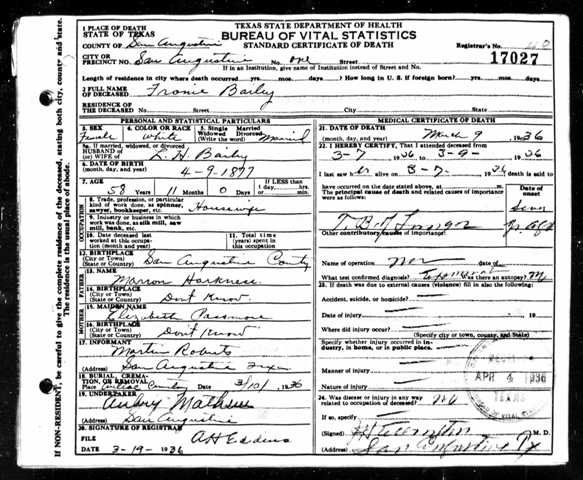 TEXAS STATE DEPARTMENT OF HEALTH
BUREAU OF VITAL STATISTICS
STANDARD CERTIFICATE OF DEATH
1 PLACE OF DEATH
STATE OF TEXAS
COUNTY OF San Augustine
Registrar's No.
17027
CITY OR PRECINCT NO. San Augustine No. one Street
If in an Institution, give name of Institution instead of Street and No.
Length of residence in city where death occurred yrs. mos. days. ? How long in U. S. if foreign born? yrs. mos. days.
2 FULL NAME OF DECEASED Fronie Bailey
RESIDENCE OF THE DECEASED No. Street City State
PERSONAL AND STATISTICAL PARTICULARS
3. SEX Female
4. COLOR OR RACE White
5. Single Married Widowed Divorced (Write the word) Married
5a. If married, widowed, or divorced HUSBAND OF (or) WIFE OF L. H. Bailey
6. DATE OF BIRTH (month, day, and year) 4-9-1877
7. AGE 58 Years 11 Months 0 Days If less than 1 day, hrs. min.
OCCUPATION
8. Trade, profession, or particular kind of work done, as spinner, sawyer, bookkeeper, etc. Housewife
9. Industry or business in which work was done, as silk mill, saw mill, bank, etc.
10. Date deceased last worked at this occupation (month and year)
11. Total time (years) spent in this occupation
12. BIRTHPLACE (City or Town) (State or Country) San Augustine County
FATHER
13. NAME Marion Harkness
14. BIRTHPLACE (City or Town) (State or Country) Dont Know
MOTHER
15. MAIDEN NAME Elizabeth Passmore
16. BIRTHPLACE (City or Town) (State or Country) Dont Know
17. INFORMANT Martin Roberts
(Address) San Augustine Texas
18. BURIAL, CREMATION, OR REMOVAL
Place Date 3/10/1936
19. UNDERTAKER Aubry Mathews
(Address) San Augustine
20. SIGNATURE OF REGISTRAR A H Eddins
FILE DATE 3-19-1936
MEDICAL CERTIFICATE OF DEATH
21. DATE OF DEATH (month, day, and year) March 9, 1936
22. I HEREBY CERTIFY, That I attended deceased from
3-7 1936 to 3-9- 1936
I last saw her alive on 3-7- 1936 death is said to
have occurred on the date stated above, at m.
The principal cause of death and related causes of importance were as follows:
Date of onset
T. B. of Lungs
Other contributory causes of importance:
Name of operation date of
What test confirmed diagnosis? Was there an autopsy?
23. If death was due to external causes (violence) fill in also the following:
Accident, suicide, or homicide?
Date of injury 19
Where did injury occur?
(Specify city or town, county, and State)
Specify whether injury occurred in industry, in home, or in public place.
Manner of injury
Nature of injury
APR 4 1936
TEXAS
24. Was disease or injury in any way related to occupation of deceased? no
If so, specify
(Signed) M. D.
(Address) San Augustine Tx
IF NON-RESIDENT, be careful to give the complete residence of the deceased, stating both city, county and state. The residence is the usual place of abode.